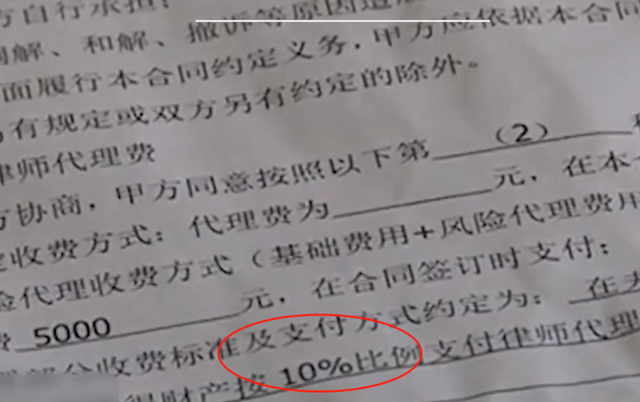 方自行承担.
调解、和解、撤诉等原因造成
面履行本合同约定义务,甲方应依据本合同
另有规定或双方另有约定的除外。
律师代理费
方协商,甲方同意按照以下第 (2)
定收费方式:代理费为 元,在本
险代理收费方式(基础费用+风险代理费用
费 5000 元,在合同签订时支付;
部分收费标准及支付方式约定为:在
得财产按 10%比例支付律师代理